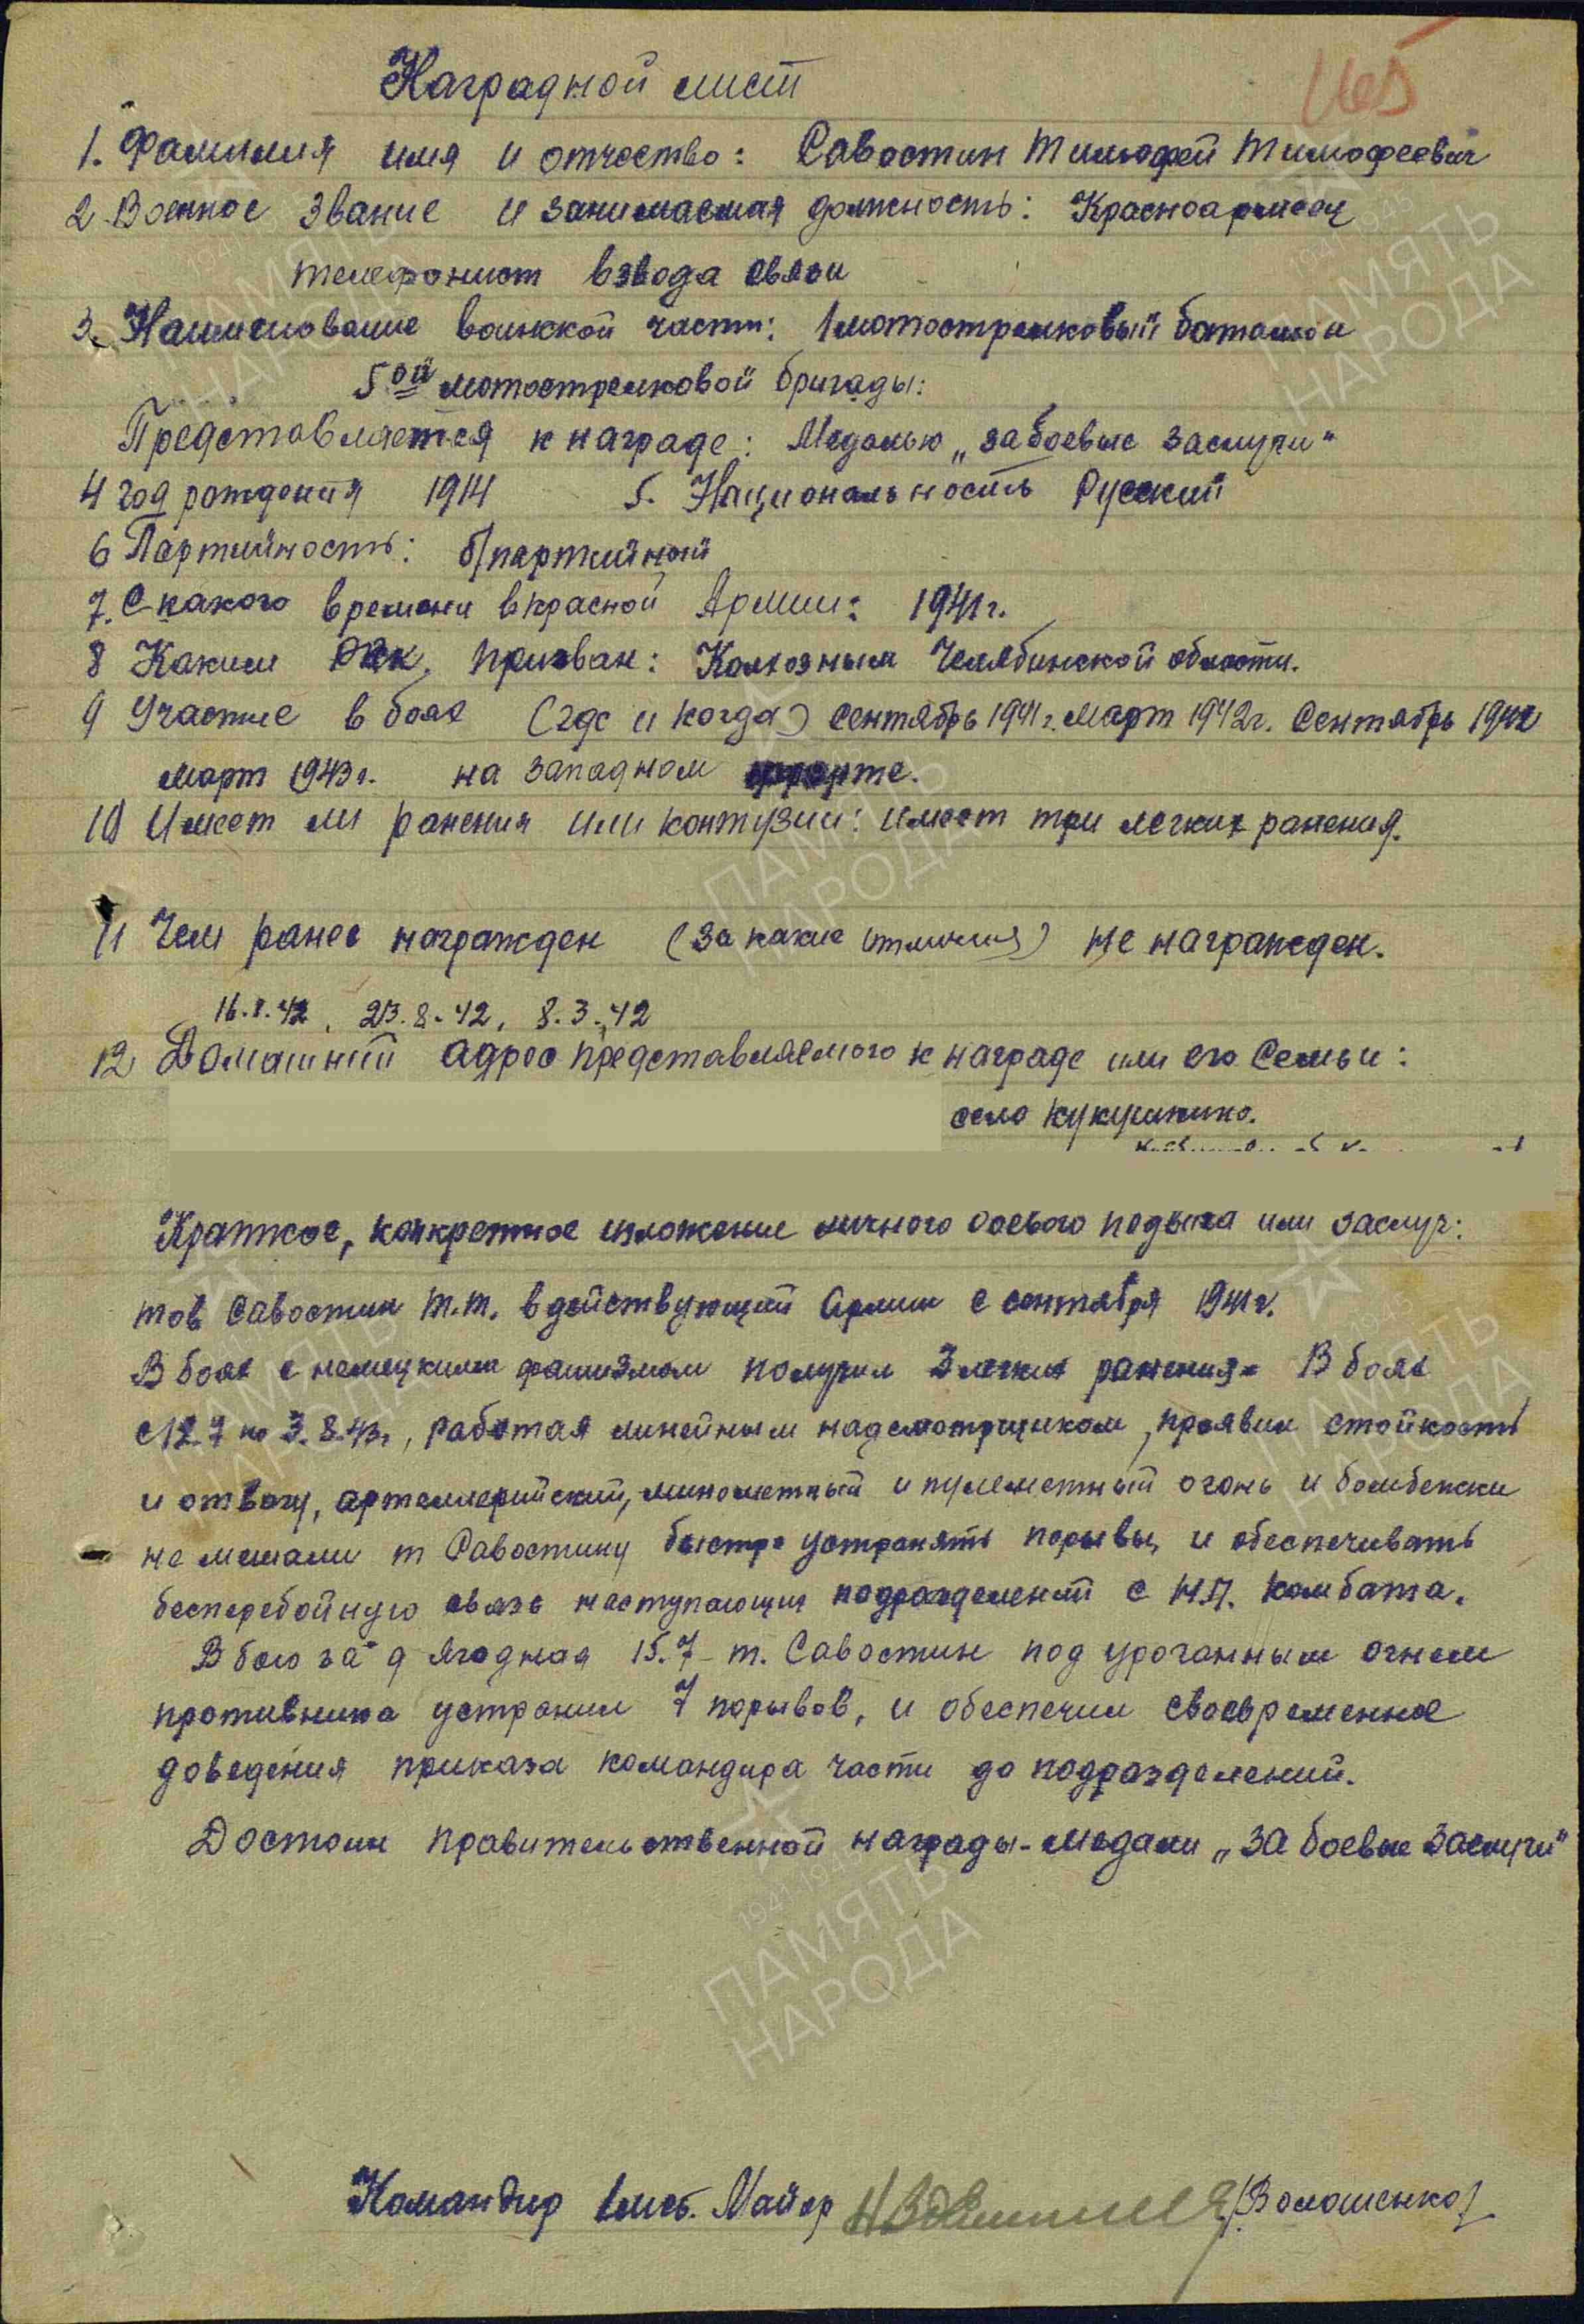 Наградной лист
1. Фамилия имя и отчество: Савостин Тимофей Тимофеевич
2 Военное звание и занимаемая должность: Красноармеец
телефонист взвода связи
3. Наименование воинской части: 1 мотострелковый батальон
5ой мотострелковой бригады:
Представляется к награде: Медалью „за боевые заслуги"
4 год рождения 1914 5. Национальность Русский
6 Партийность: б/партийный
7. С какого времени в красной Армии: 1941 г.
8 Каким РВК. призван: Колхозным Челябинской области.
9 Участие в боях (где и когда) сентябрь 1941 г. март 1942 г. Сентябрь 1942
март 1943 г. на западном фронте.
10 Имеет ли ранения или контузии: имеет три легких ранения.
11 Чем ранее награжден (за какие отличия) не награжден.
16.8.42, 23.8.42, 8.3.42
12 Домашний адрес представляемого к награде или его семьи:
село Кукушкино.
Краткое, конкретное изложение личного боевого подвига или заслуг:
тов Савостин Т.Т. в действующей Армии с сентября 1941 г.
В боях с немецким фашизмом получил 3 легких ранения. В боях
с 12.7 по 3.8.43 г, работая линейным надсмотрщиком, проявил стойкость
и отвагу, артиллерийский, минометный и пулеметный огонь и бомбежки
не мешали т Савостину быстро устранять порывы, и обеспечивать
бесперебойную связь наступающих подразделений с Н.П. комбата.
В бою за д Ягодная 15.7 - т. Савостин под ураганным огнем
противника устранил 7 порывов, и обеспечил своевременное
доведения приказа командира части до подразделений.
Достоин правительственной награды - медали „за боевые заслуги"
Командир 1 мсб. Майор /Волошенко/
ПАМЯТЬ
НАРОДА